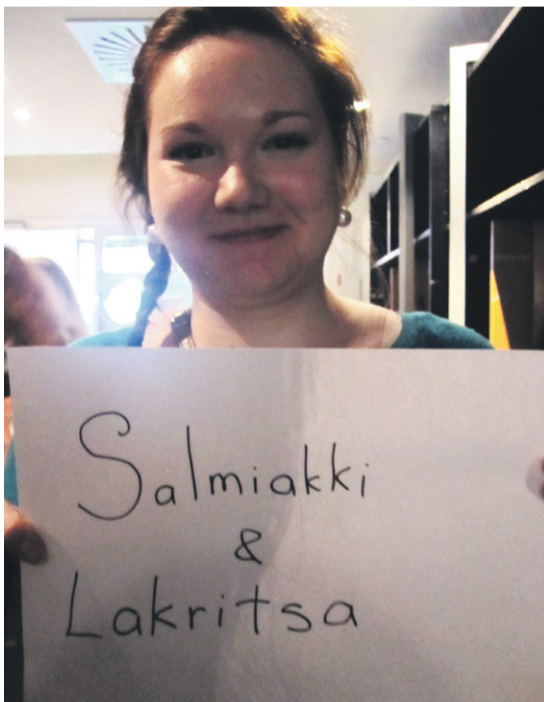 Salmiakki
&
Lakritsa